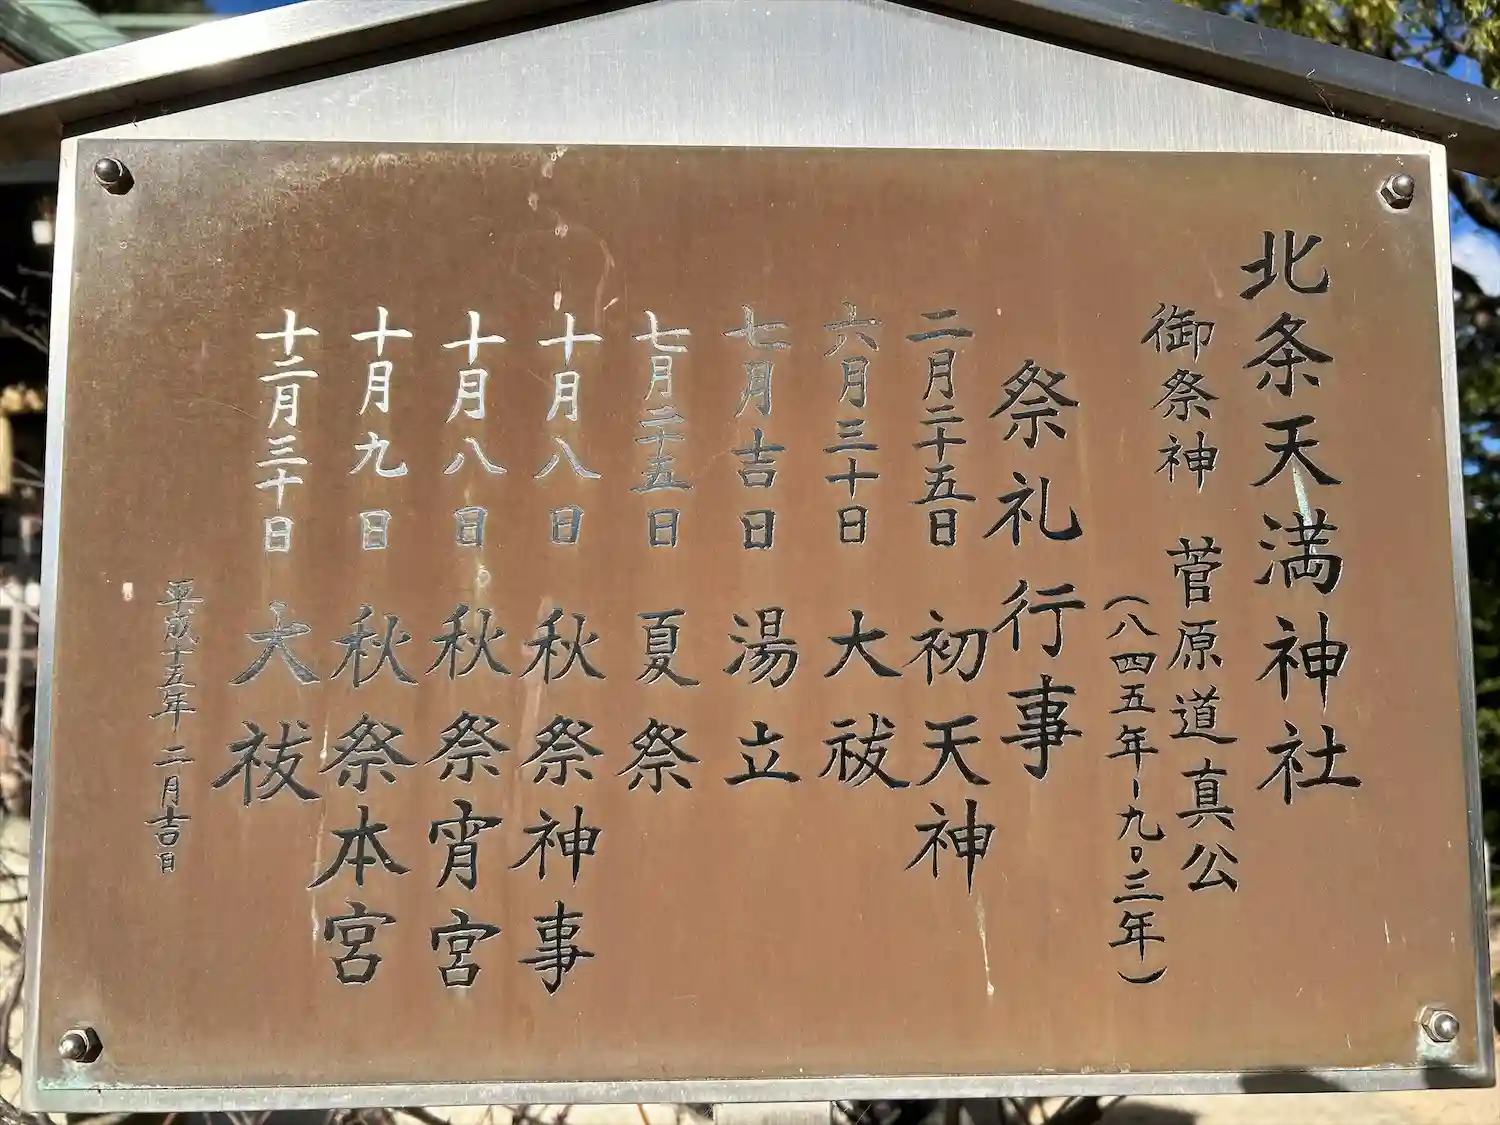 北条天満神社
御祭神 菅原道真公
(八四五年-九〇三年)
祭礼行事
二月二十五日 初天神
六月三十日 大祓
七月吉日 湯立
七月二十五日 夏祭
十月八日 秋祭神事
十月八日 秋祭宵宮
十月九日 秋祭本宮
十二月三十日 大祓
平成十五年 二月吉日